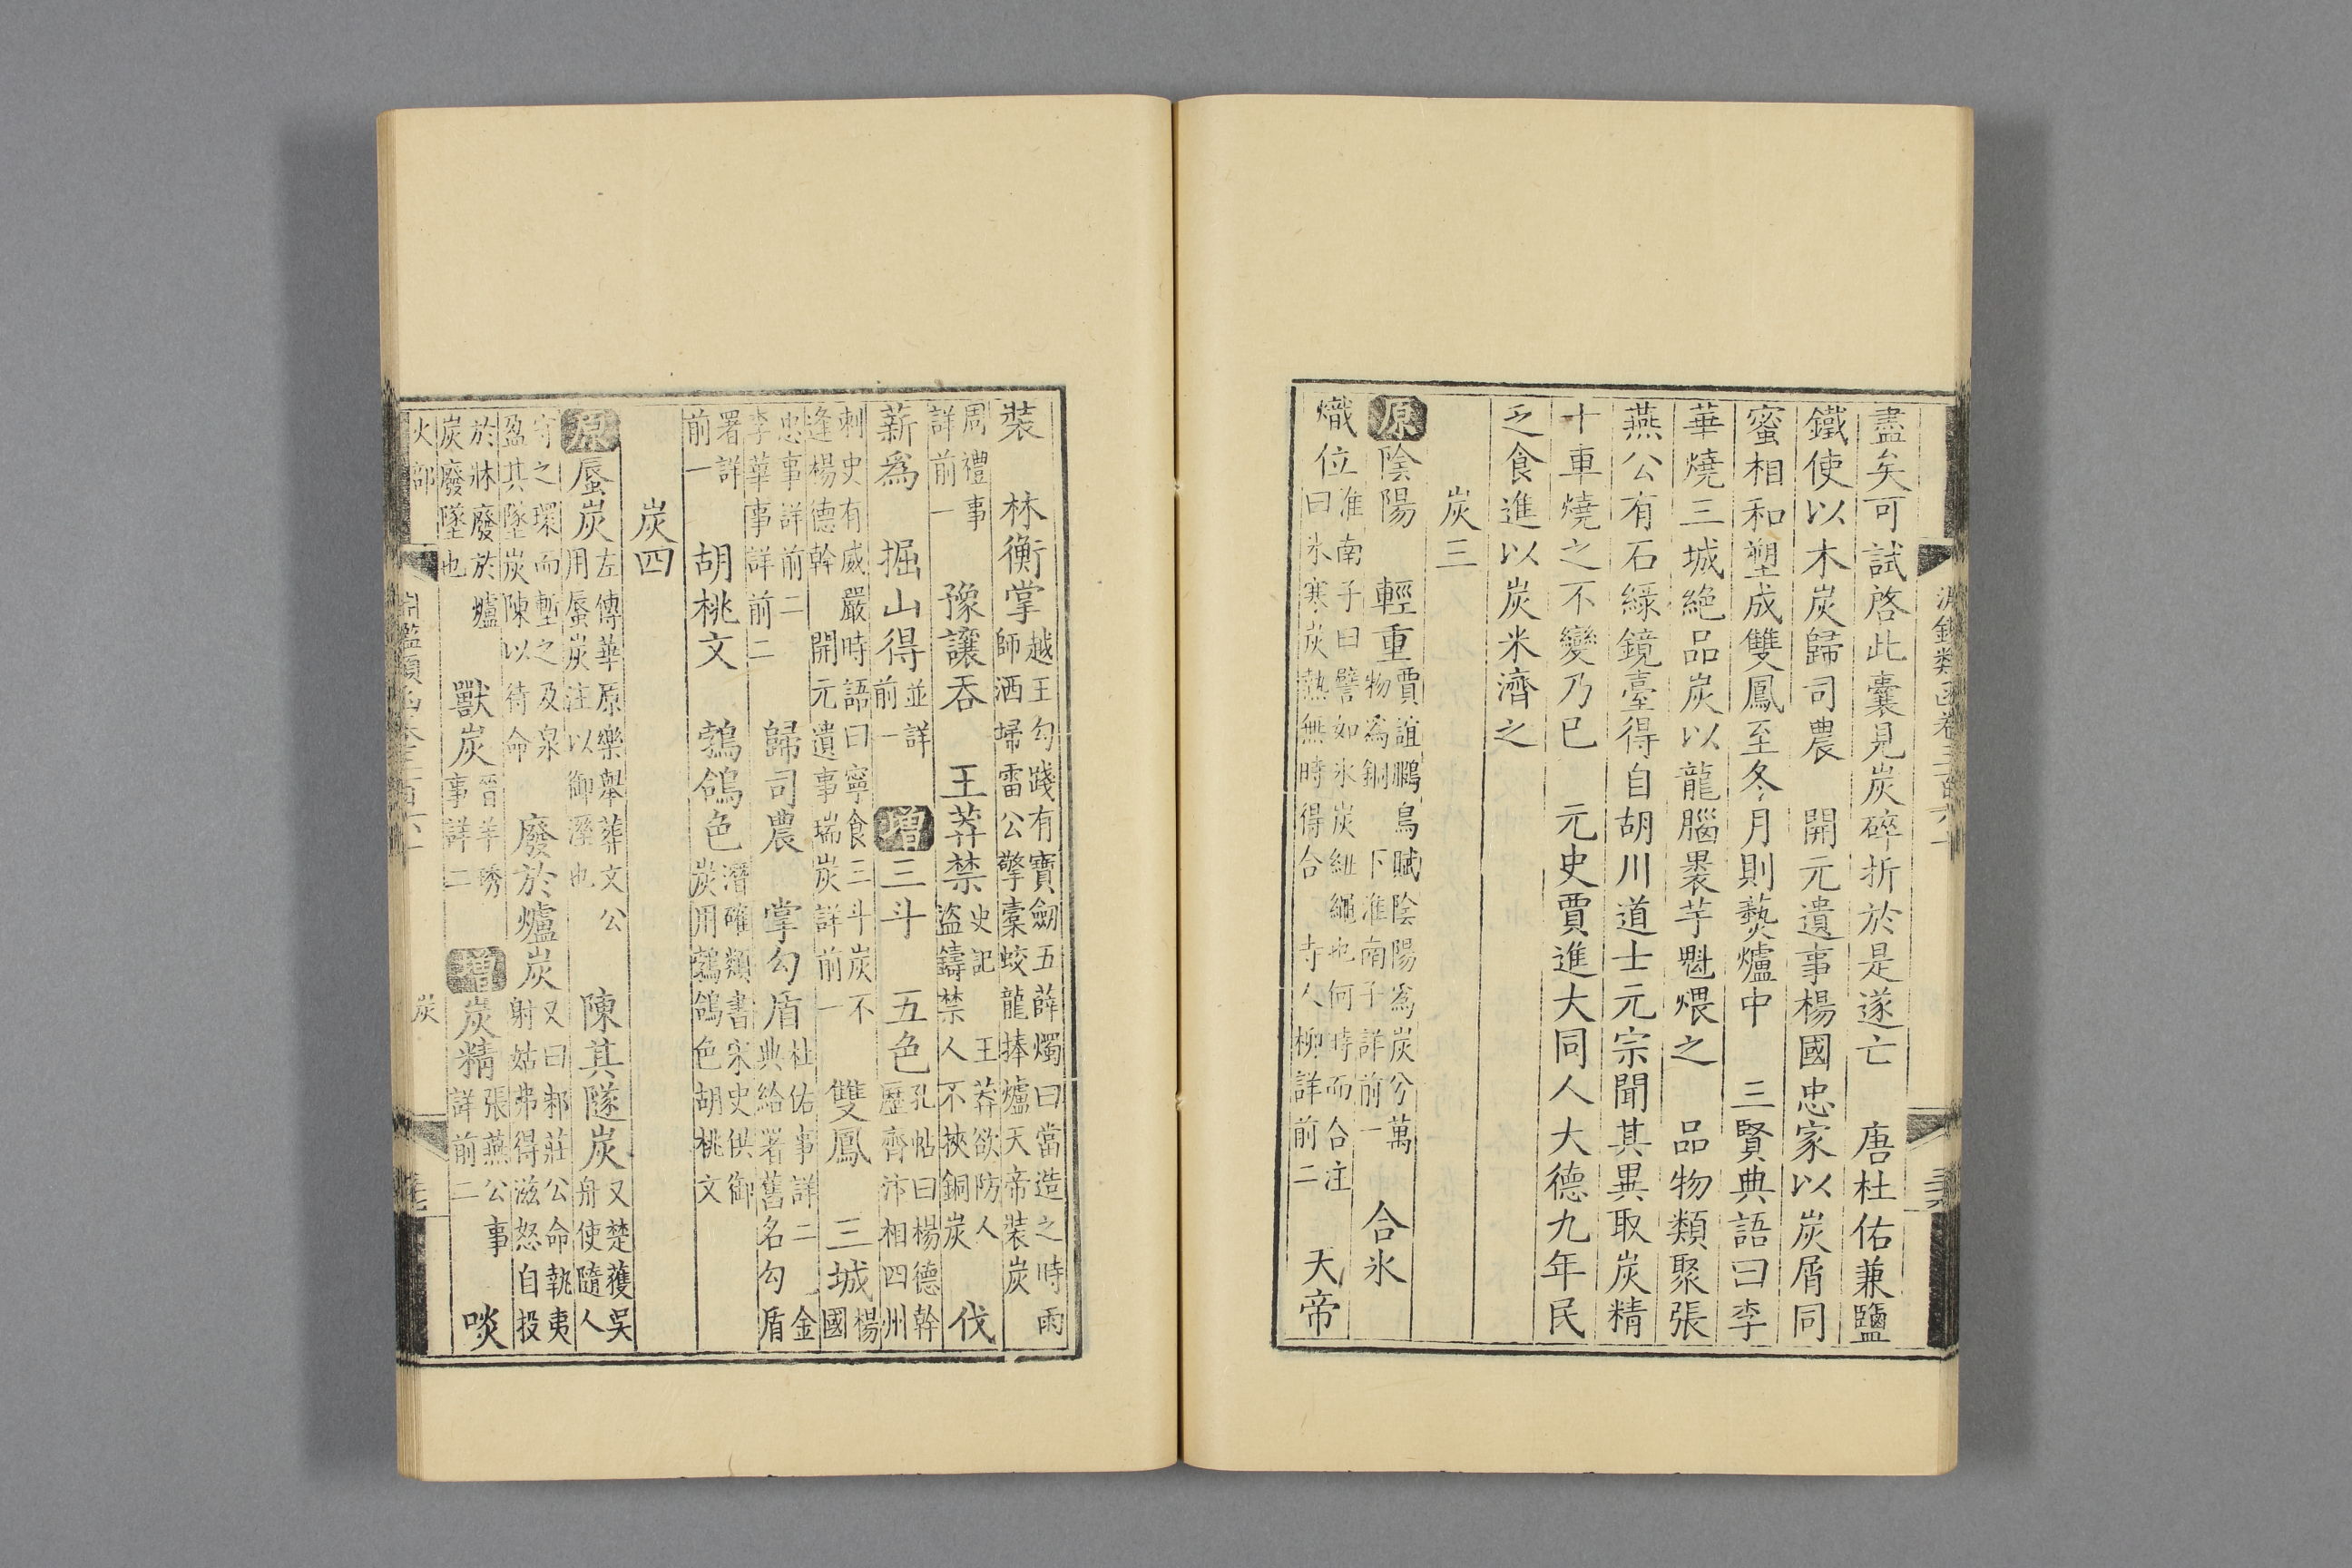 盡矣可試啓此囊見炭碎折於是遂亡　唐杜佑兼鹽
鐵使以木炭歸司農　開元遺事楊國忠家以炭屑同
蜜相和塑成雙鳳至冬月則爇爐中　三賢典語曰李
華燒三城絶品炭以龍腦裹芋魁煨之　品物類聚張
燕公有石綠鏡臺得自胡川道士元宗聞其異取炭精
十車燒之不變乃已　元史賈進大同人大德九年民
乏食進以炭米濟之
炭三
原陰陽　輕重賈誼鵩鳥賦陰陽爲炭兮萬物爲銅　下淮南子詳前一　合氷
熾位淮南子曰譬如氷炭紐繩也何時而合注曰氷寒炭熱無時得合　寺人柳詳前二　天帝
裝　林衡掌越王勾踐有寶劒五薛燭曰當造之時雨師洒埽雷公擎橐蛟龍捧爐天帝裝炭
周禮事詳前一　豫讓吞　王莽禁史記　王莽欲防人盜鑄禁人不挾銅炭　伐
薪爲　掘山得並詳前一　增三斗　五色孔帖曰楊德幹歷齊汴相四州
刺史有威嚴時語曰寧食三斗炭不逢楊德幹　開元遺事瑞炭詳前一　雙鳳　三城楊國
忠事詳前二李華事詳前二　歸司農　掌勾盾杜佑事詳二　金典給署舊名勾盾
署詳前一　胡桃文　鵓鴿色潛確類書宋史供御炭用鵓鴿色胡桃文
炭四
原蜃炭左傳華原樂舉葬文公用蜃炭注以御溼也　陳其隧炭又楚獲吳舟使隨人
守之環而塹之及泉盈其隧炭陳以待命　廢於爐炭又曰邾莊公命執夷射姑弗得滋怒自投
於牀廢於爐炭廢墜也　獸炭晉羊琇事詳二　增炭精張燕公事詳前二　啖
火部　炭